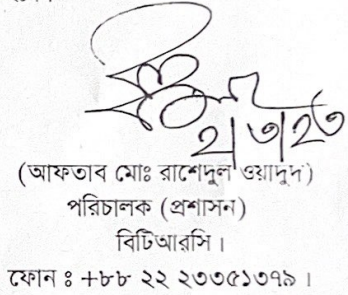 (আফতাব মোঃ রাশেদুল ওয়াদুদ)
পরিচালক (প্রশাসন)
বিটিআরসি।
ফোন ঃ +৮৮ ২২ ২৩৩৫১৩৭৯।